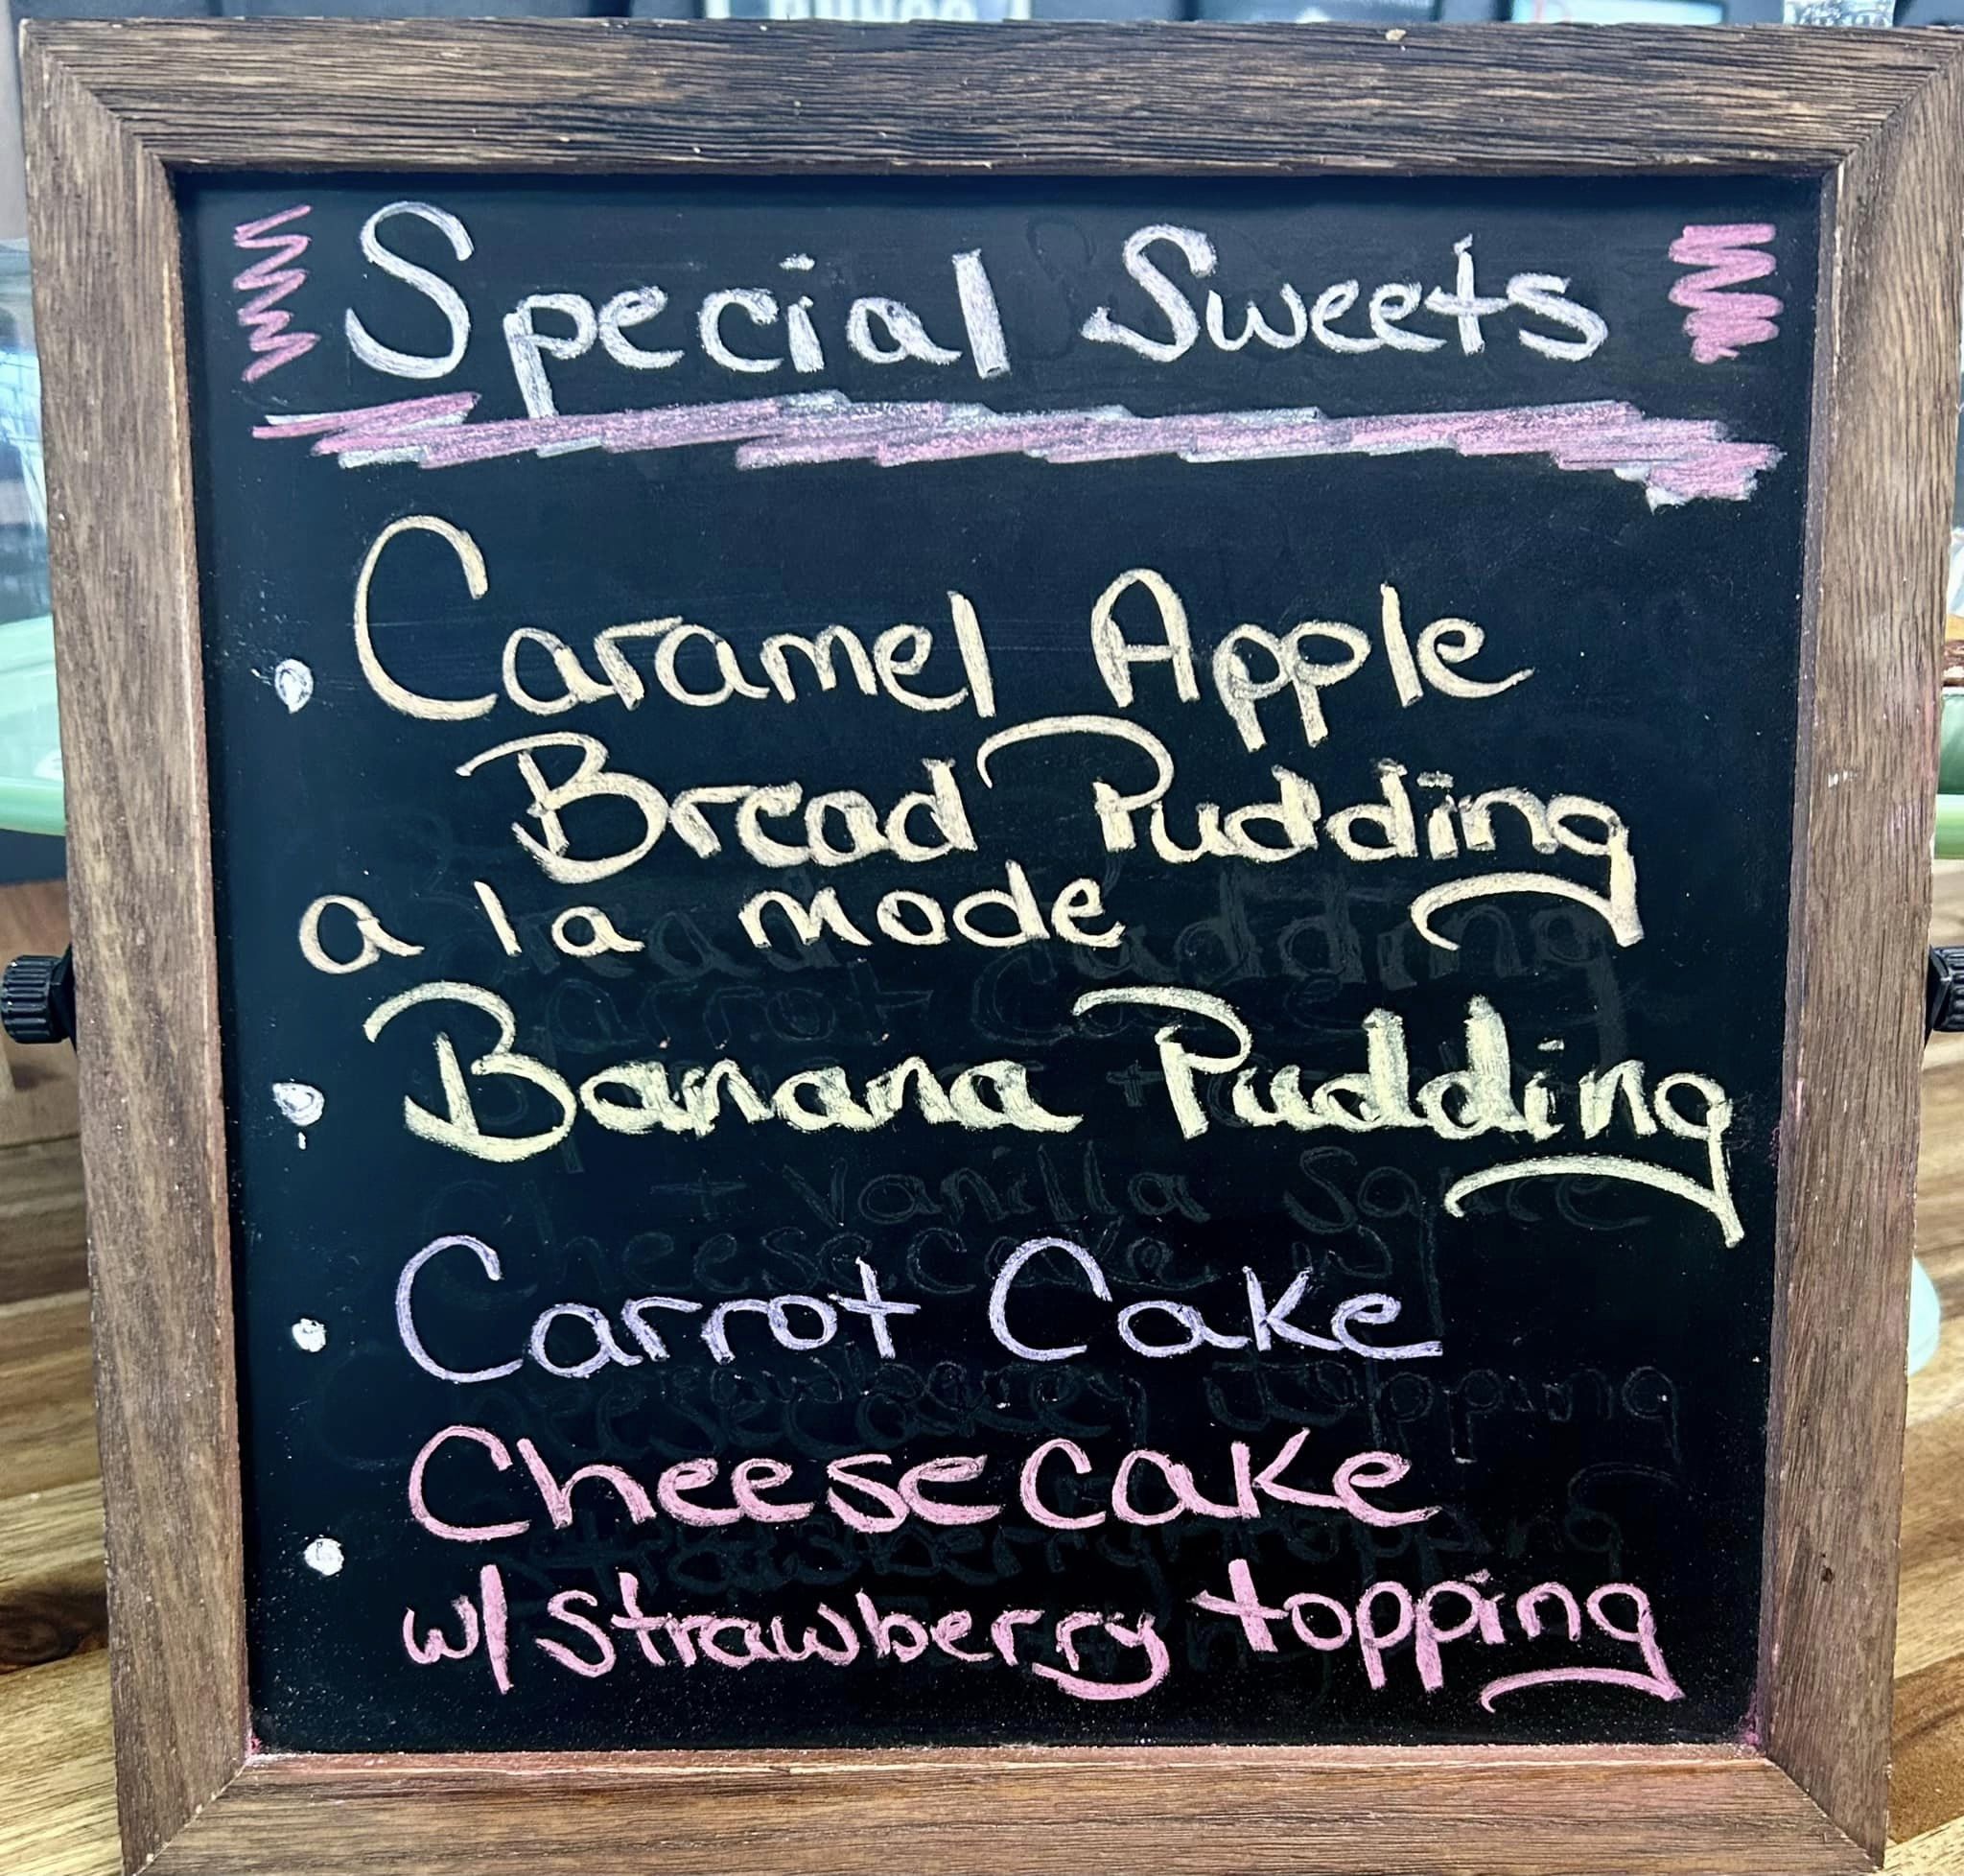 Special Sweets
• Caramel Apple
Bread Pudding
a la mode
• Banana Pudding
• Carrot Cake
• Cheesecake
w/ Strawberry topping